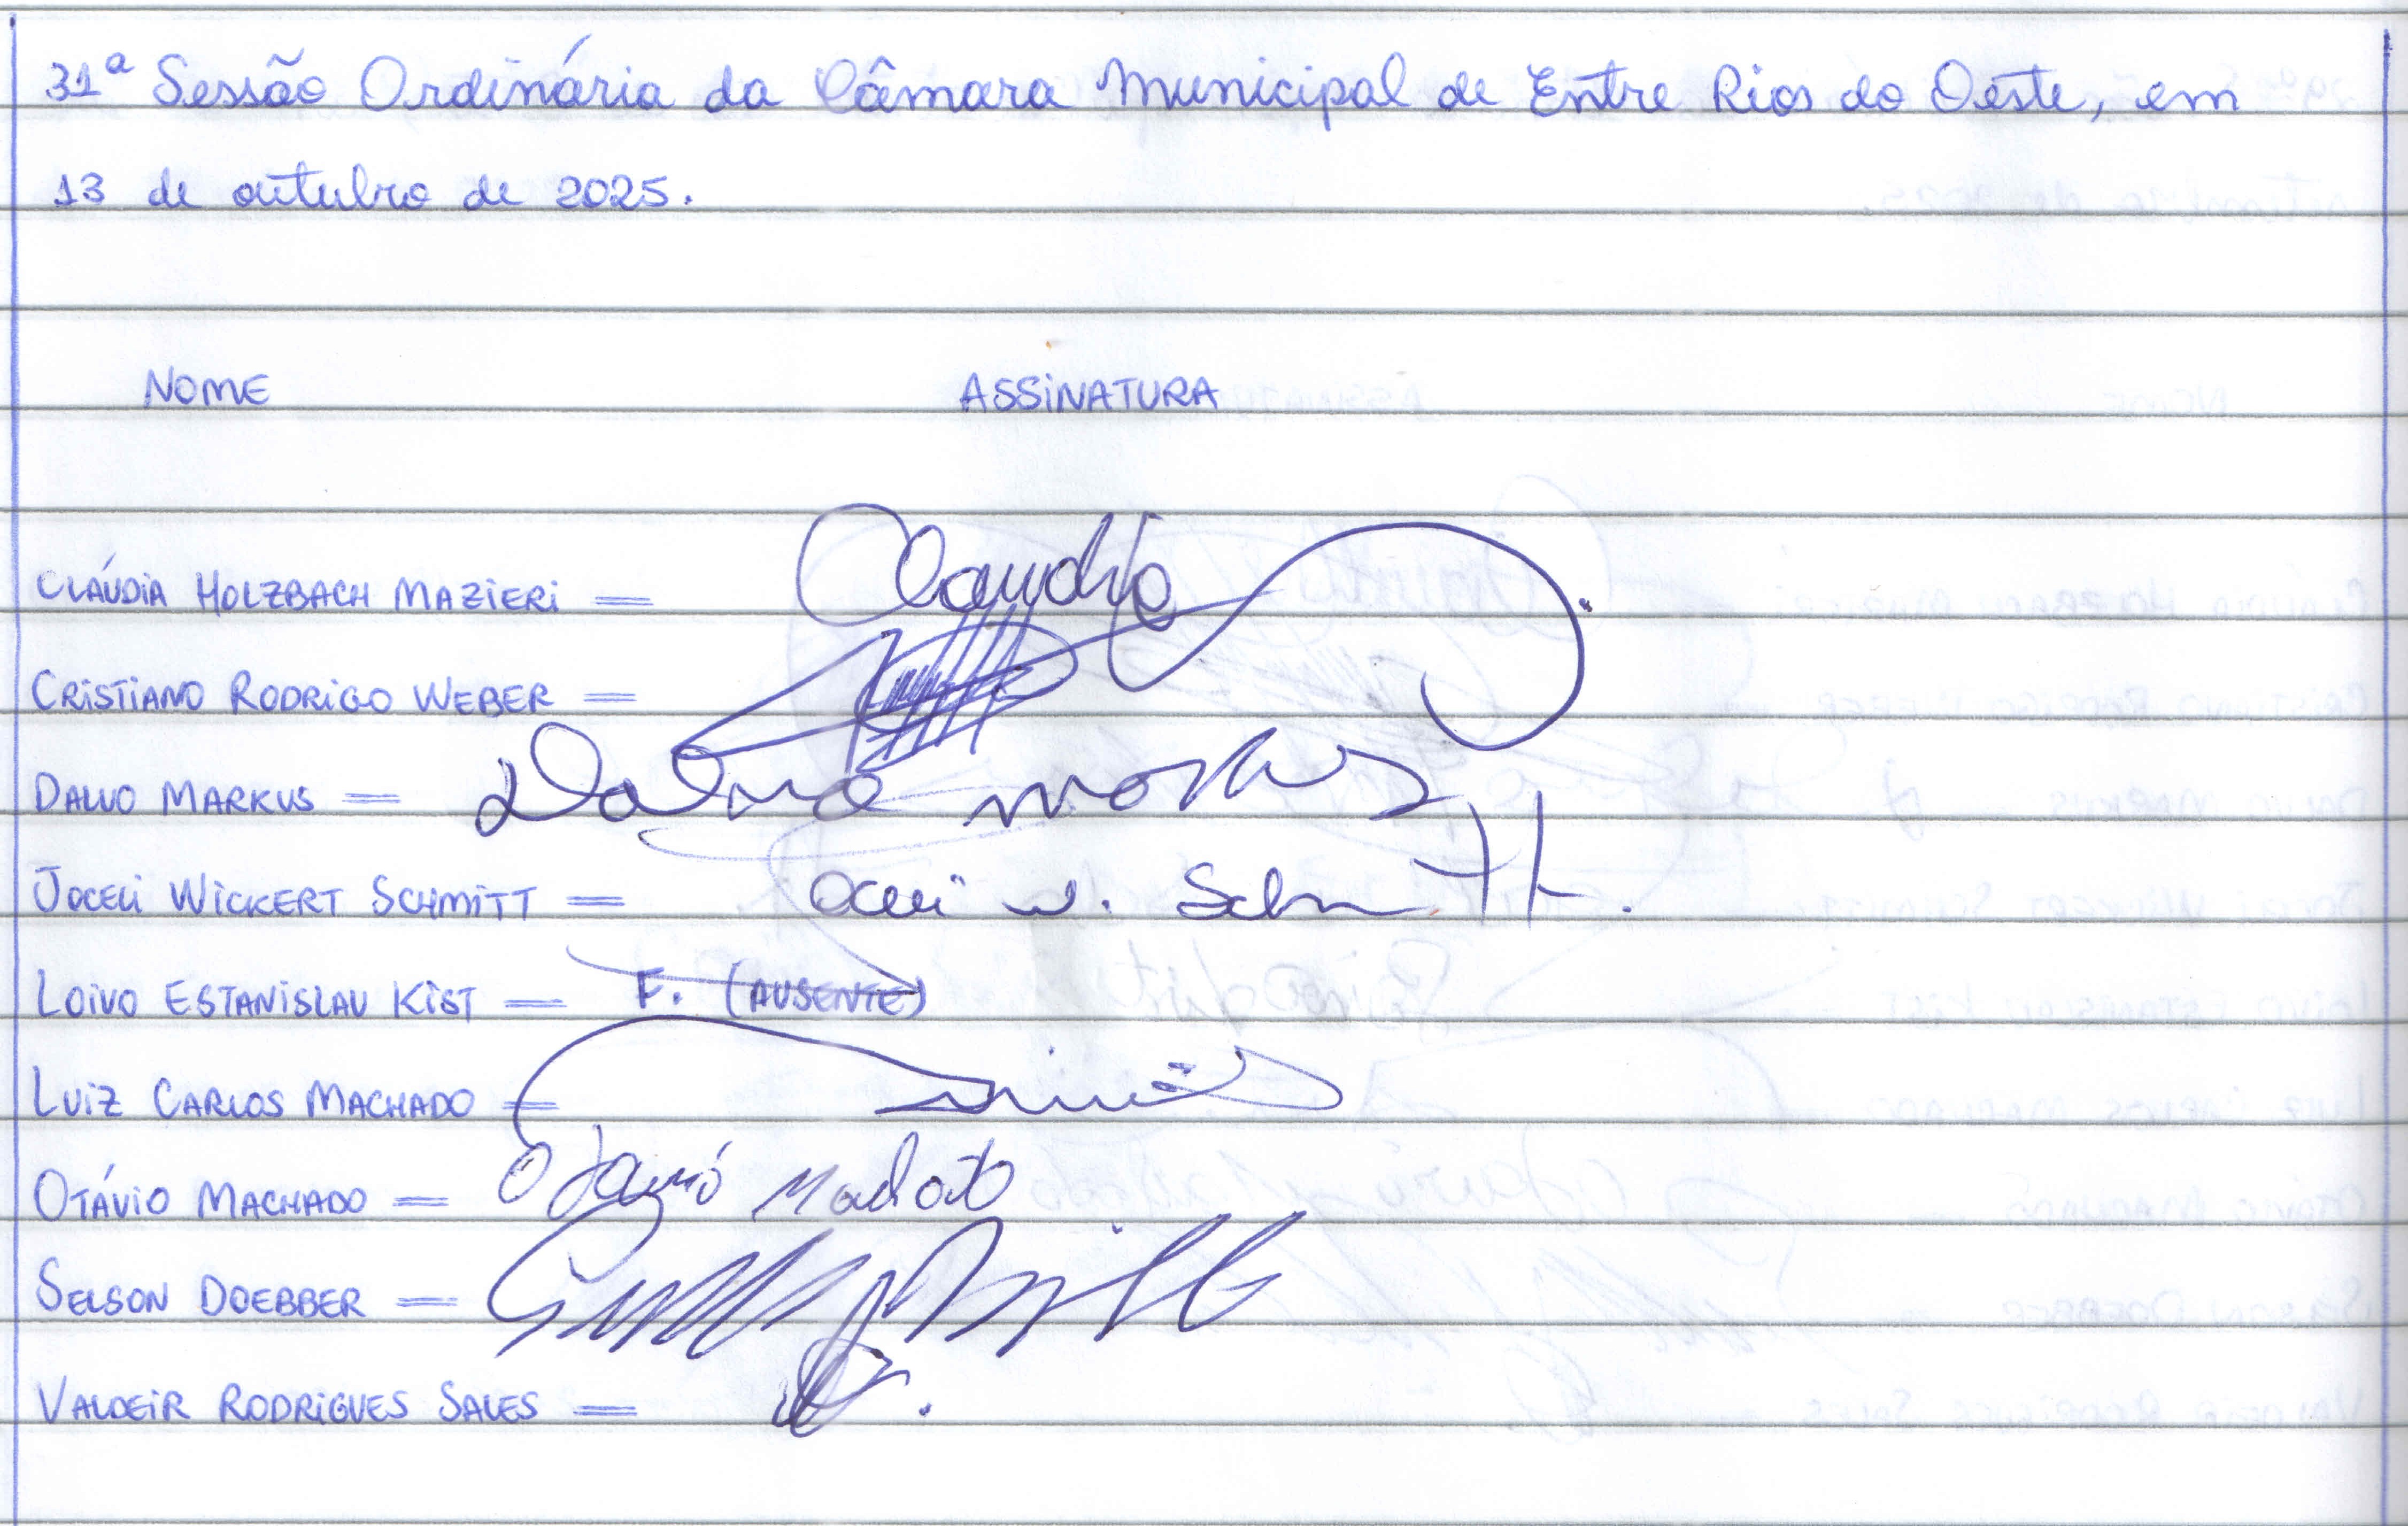 31ª Sessão Ordinária da Câmara Municipal de Entre Rios do Oeste, em
13 de outubro de 2025.
NOME ASSINATURA
CLÁUDIA HOLZBACH MAZIERI — Claudia
CRISTIANO RODRIGO WEBER —
DALVO MARKUS — Dalvo Markus
JOCELI WICKERT SCHMITT — Joceli W. Schmitt.
LOIVO ESTANISLAU KIST — F. (AUSENTE)
LUIZ CARLOS MACHADO —
OTÁVIO MACHADO — Otavio Machado
SELSON DOEBBER —
VALDEIR RODRIGUES SALES —